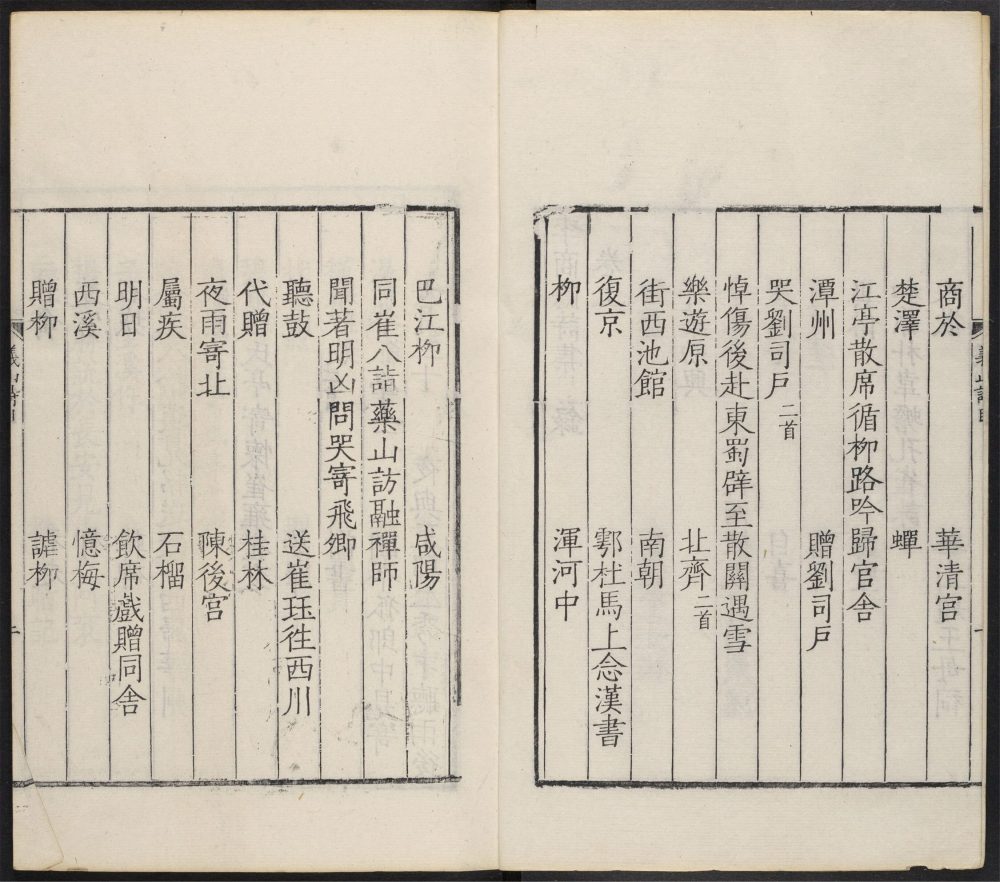 商於　華清宮
楚澤　蟬
江亭散席循柳路吟歸官舍
潭州　贈劉司戶
哭劉司戶二首
悼傷後赴東蜀辟至散關遇雪
樂遊原　北齊二首
街西池館　南朝
復京　鄠杜馬上念漢書
柳　渾河中
巴江柳　咸陽
同崔八詣藥山訪融禪師
聞著明凶問哭寄飛卿
聽鼓　送崔珏往西川
代贈　桂林
夜雨寄北　陳後宮
屬疾　石榴
明日　飲席戲贈同舍
西溪　憶梅
贈柳　謔柳
義山詩目
二